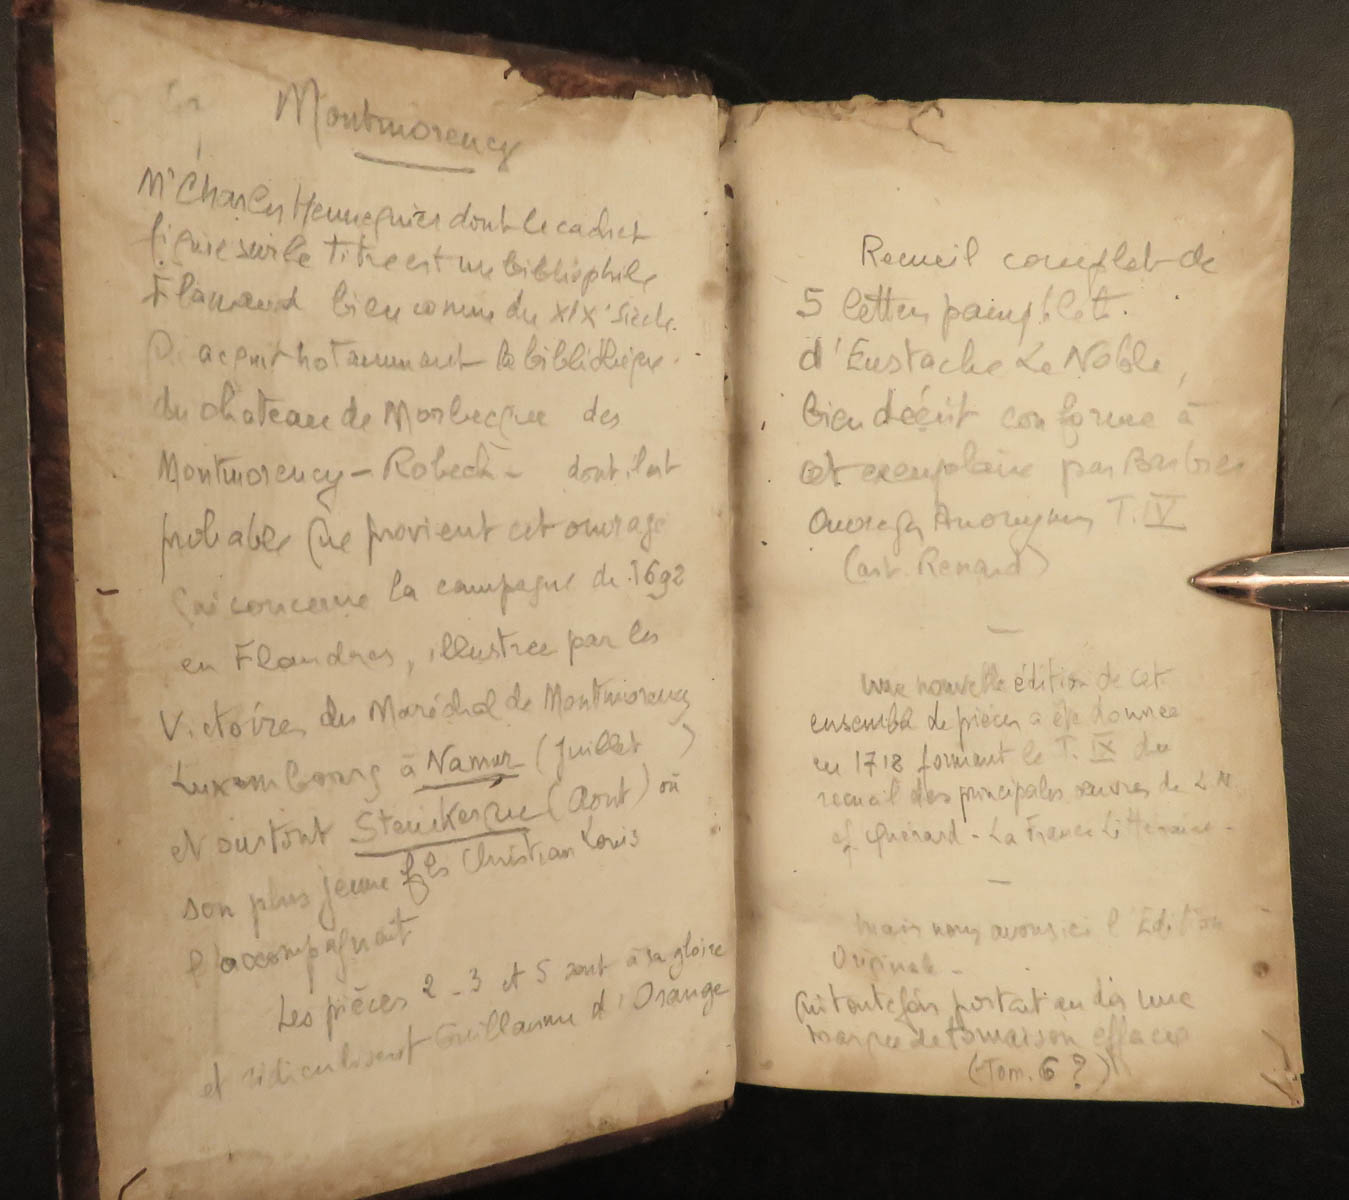 Montmorency
Mr Charles Hennequier dont le cachet
figure sur le titre est un bibliophile
Flamand bien connu du XIXe siècle.
acquit notamment la bibliothèque
du chateau de Morbecque des
Montmorency - Robech - dont il est
probable que provient cet ouvrage
qui concerne la campagne de 1692
en Flandres, illustrée par les
Victoires du Maréchal de Montmorency
Luxembourg à Namur (Juillet )
et surtout Steinkerque (Aout) où
son plus jeune fils Christian Louis
l'accompagnait
Les pièces 2 - 3 et 5 sont à sa gloire
et ridiculisent Guillaume d'Orange
Recueil complet de
5 lettres pamphlets.
d'Eustache Le Noble,
bien décrit conforme à
cet exemplaire par Barbier
Ouvrages Anonymes T. IV
(art. Renard)
—
Une nouvelle édition de cet
ensemble de pièces a été donnée
en 1718 formant le T. IX du
recueil des principales œuvres de L N
cf Quérard - La France Littéraire -
—
Mais nous avons ici l'Edition
Originale -
qui toutefois portait au dos une
marque de tomaison effacée
(Tom. 6 ?)